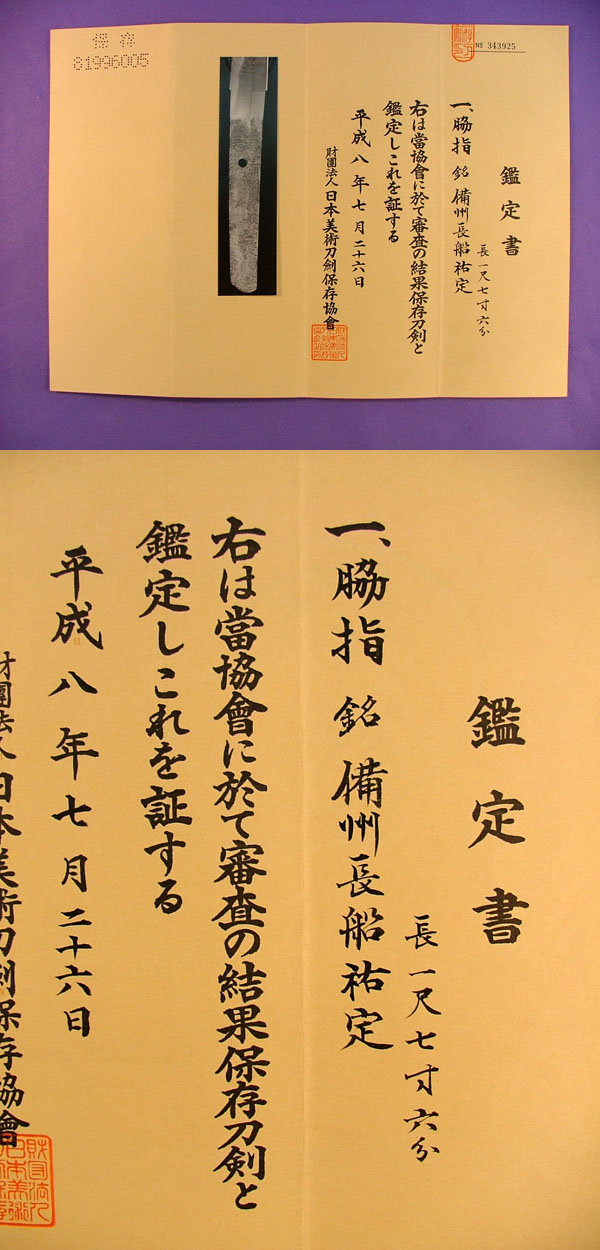 保存
81996005
№ 343925
鑑定書
一、脇指 銘 備州長船祐定
長一尺七寸六分
右は當協會に於て審査の結果保存刀剣と
鑑定しこれを証する
平成八年七月二十六日
財團法人日本美術刀剣保存協會
鑑定書
一、脇指 銘 備州長船祐定
長一尺七寸六分
右は當協會に於て審査の結果保存刀剣と
鑑定しこれを証する
平成八年七月二十六日
財團法人日本美術刀剣保存協會